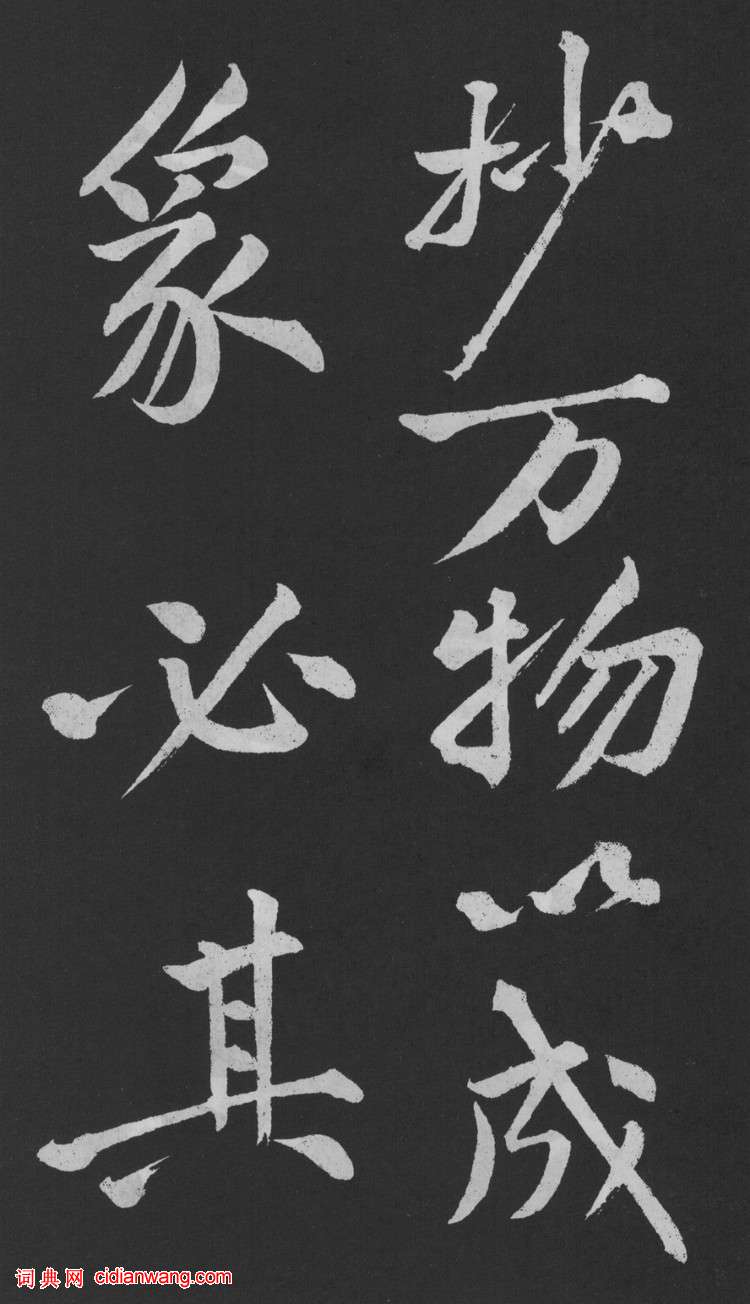 抄万物以成
象必其
词典网 cidianwang.com